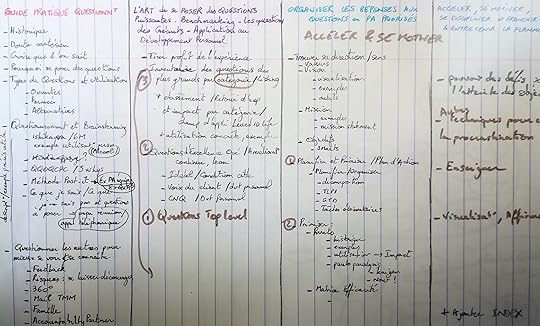 GUIDE PRATIQUE QUESTIONNT
- Historique
- Croire que l'on sait
- Pourquoi se poser des questions
- Types de Questions et Utilisation
- Ouvertes
- Fermées
- Alternatives
- Questionnement et Brainstorming
Ishikawa / 6M
- QQOQCPC / 5 whys
- Méthode Post-it
- Ce que je sais / Ce que
je ne sais pas et questions
à poser
- Questionner les autres pour
mieux se voir et se connaître
- Feedback
- Risques : se laisser décourager
- 360°
- Mail TMM
- Famille
- Accountability Partner
L'ART de SE POSER des QUESTIONS
Puissantes - Benchmarking - Les questions
des Gérants - Application au
Développement Personnel
- Tirer profit de l'expérience
- Inventaire des questions des
plus grands par catégorie / listing
+ classement / Retour d'exp
et impact par catégorie /
+ utilisation concrète, exemple
② Questions d'Excellence Ope / Amélioration
continue, Lean
- Idéal / Condition
- Voix du client / Dvt personnel
- CNQ / Dvt Personnel
① Questions Top level
ORGANISER LES RÉPONSES AUX
QUESTIONS en PA PRIORISÉS
ACCÉLÉRER & SE MOTIVER
- Trouver sa direction / sens
- Valeurs
- Vision
- visualisation
- exemples
- outils
- Mission
- exemples
- mission statement
- objectifs
- Smarts
① Planifier et Prioriser / Plan d'Action
- Planifier / organiser
- décomposition
- TLPI
- GTD
- Tâches élémentaires
② Prioriser :
- Pareto
- historique
- exemples
- utilisation → Impact
- Matrice Efficacité
ACCELERER, SE MOTIVER,
SE DISCIPLINER et FRANCHIR
& ENTRETENIR LA FLAMME
- pouvoir des défis
l'atteinte des objec
Autres
Techniques pour
la procrastination
- Enseigner
- Visualisat°, Affirma
+ Ajouter INDEX